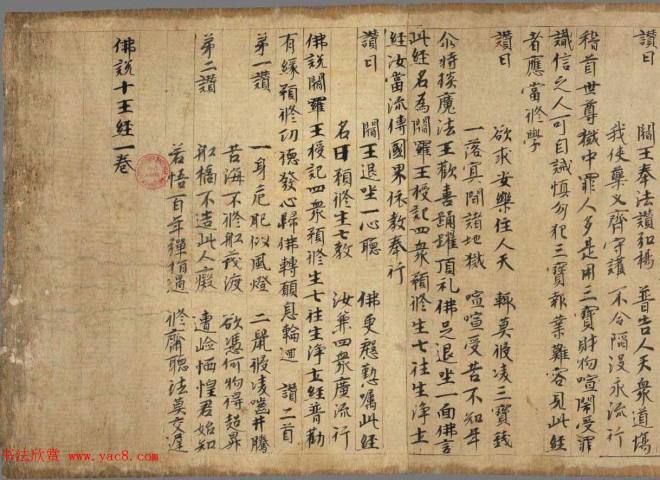 讚曰 閻王奉法讚弘楊 普告人天衆道塲
我使藥义齊守護 不令陷没永流行
稽首世尊獄中罪人多是用三寶財物喧閙受罪
識信之人可自誡慎勿犯三寶報業難容見此經
者應當修學
讚曰 欲求安樂住人天 輙莫侵凌三寶錢
一落㝠間諸地獄 喧喧受苦不知年
尒時琰魔法王歡喜踊躍頂礼佛足退坐一面佛言
此經名為閻羅王授記四衆預修生七往生淨土
經汝當流傳國界依教奉行
讚曰 閻王退坐一心聽 佛更慇懃嘱此經
名曰預修生七教 汝兼四衆廣流行
佛説閻羅王授記四衆預修生七往生淨土經普勸
有緣預修功德發心歸佛轉願息輪迴 讚二首
第一讚 一身危脃似風燈 二鼠侵凌嚙井騰
苦海不修舩栰渡 欲憑何物得超昇
第二讚 舩橋不造此人癡 遭嶮恓惶君始知
若悟百年彈指過 修齋聽法莫交遲
佛説十王經一卷
书法欣赏 www.yac8.com